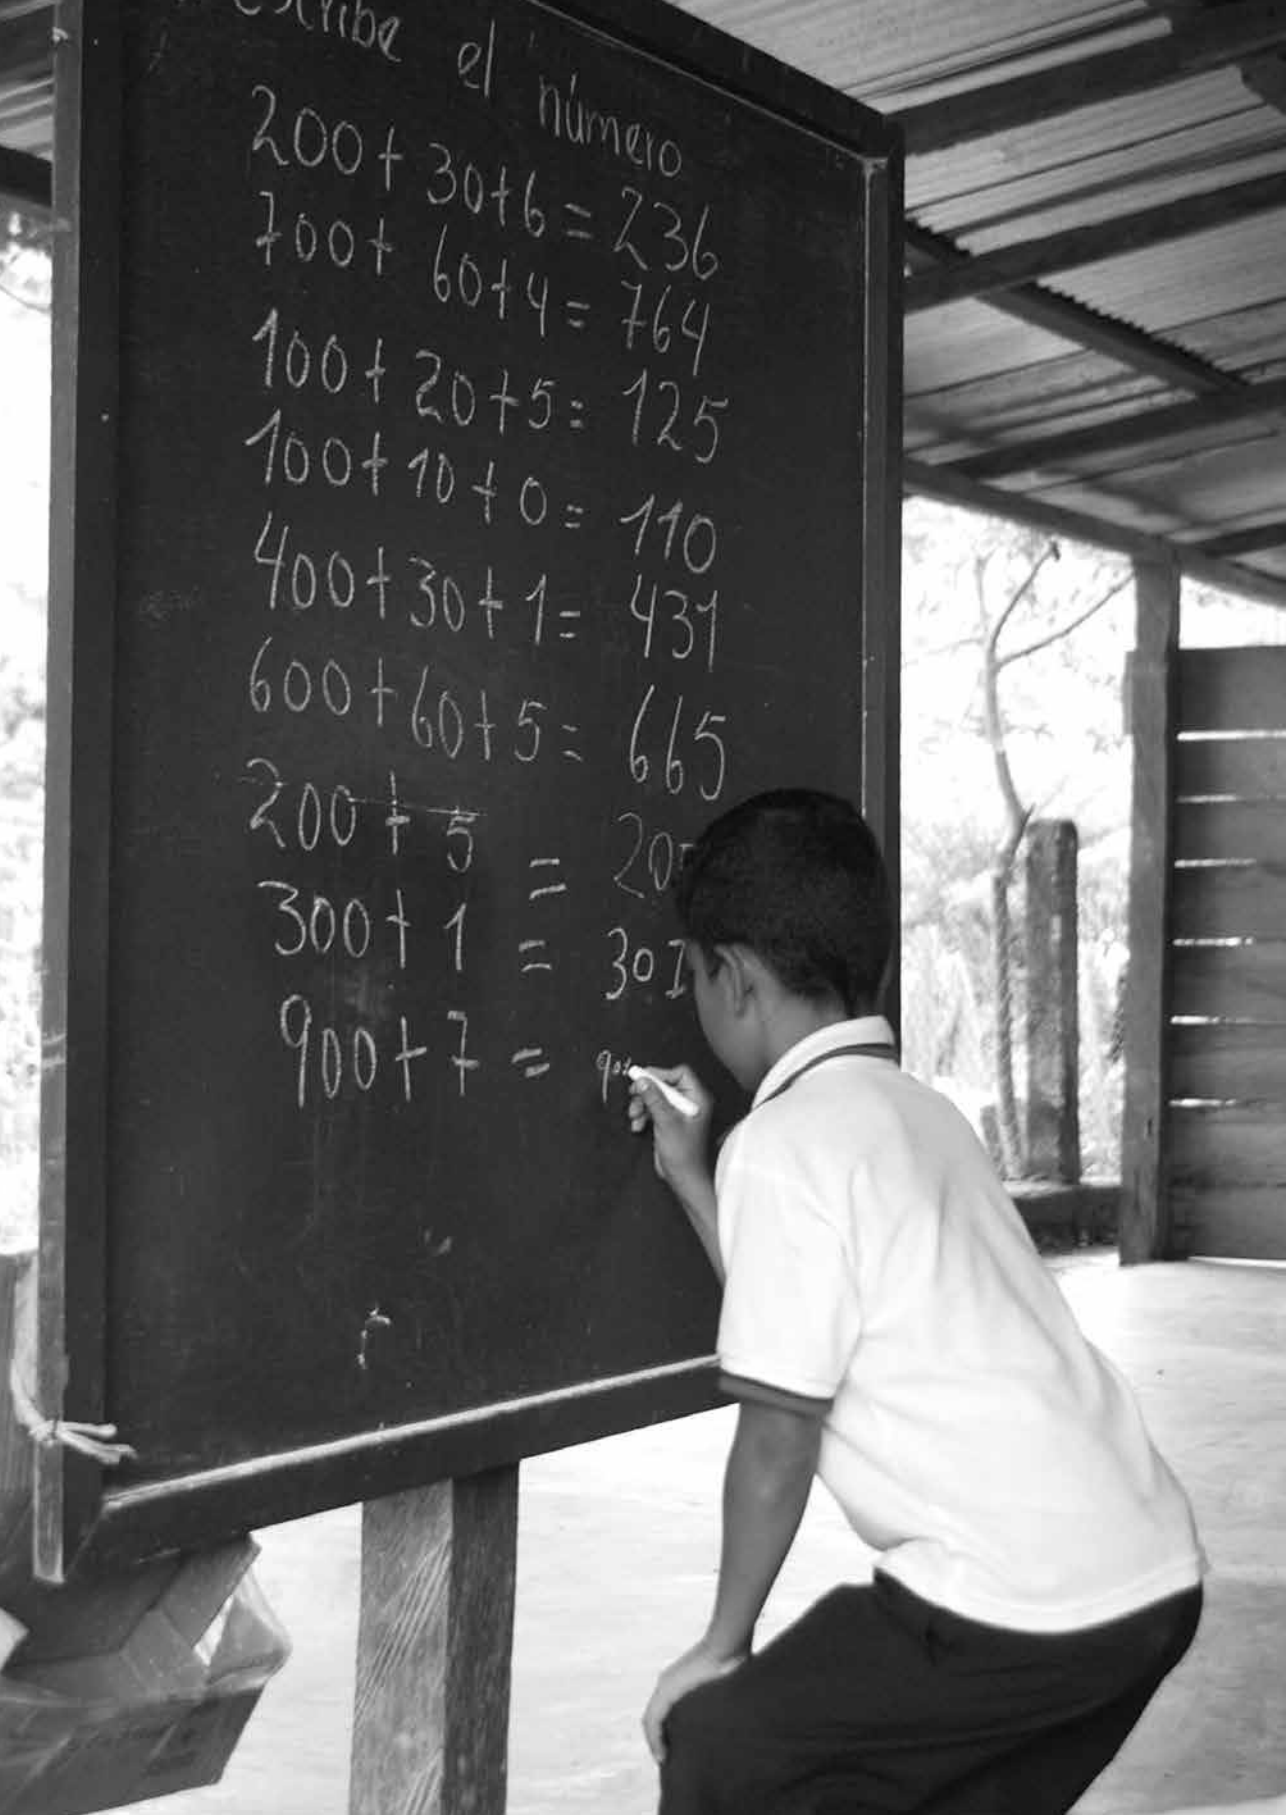 escribe el número
200 + 30 + 6 = 236
700 + 60 + 4 = 764
100 + 20 + 5 = 125
100 + 10 + 0 = 110
400 + 30 + 1 = 431
600 + 60 + 5 = 665
200 + 5 =
300 + 1 = 301
900 + 7 =